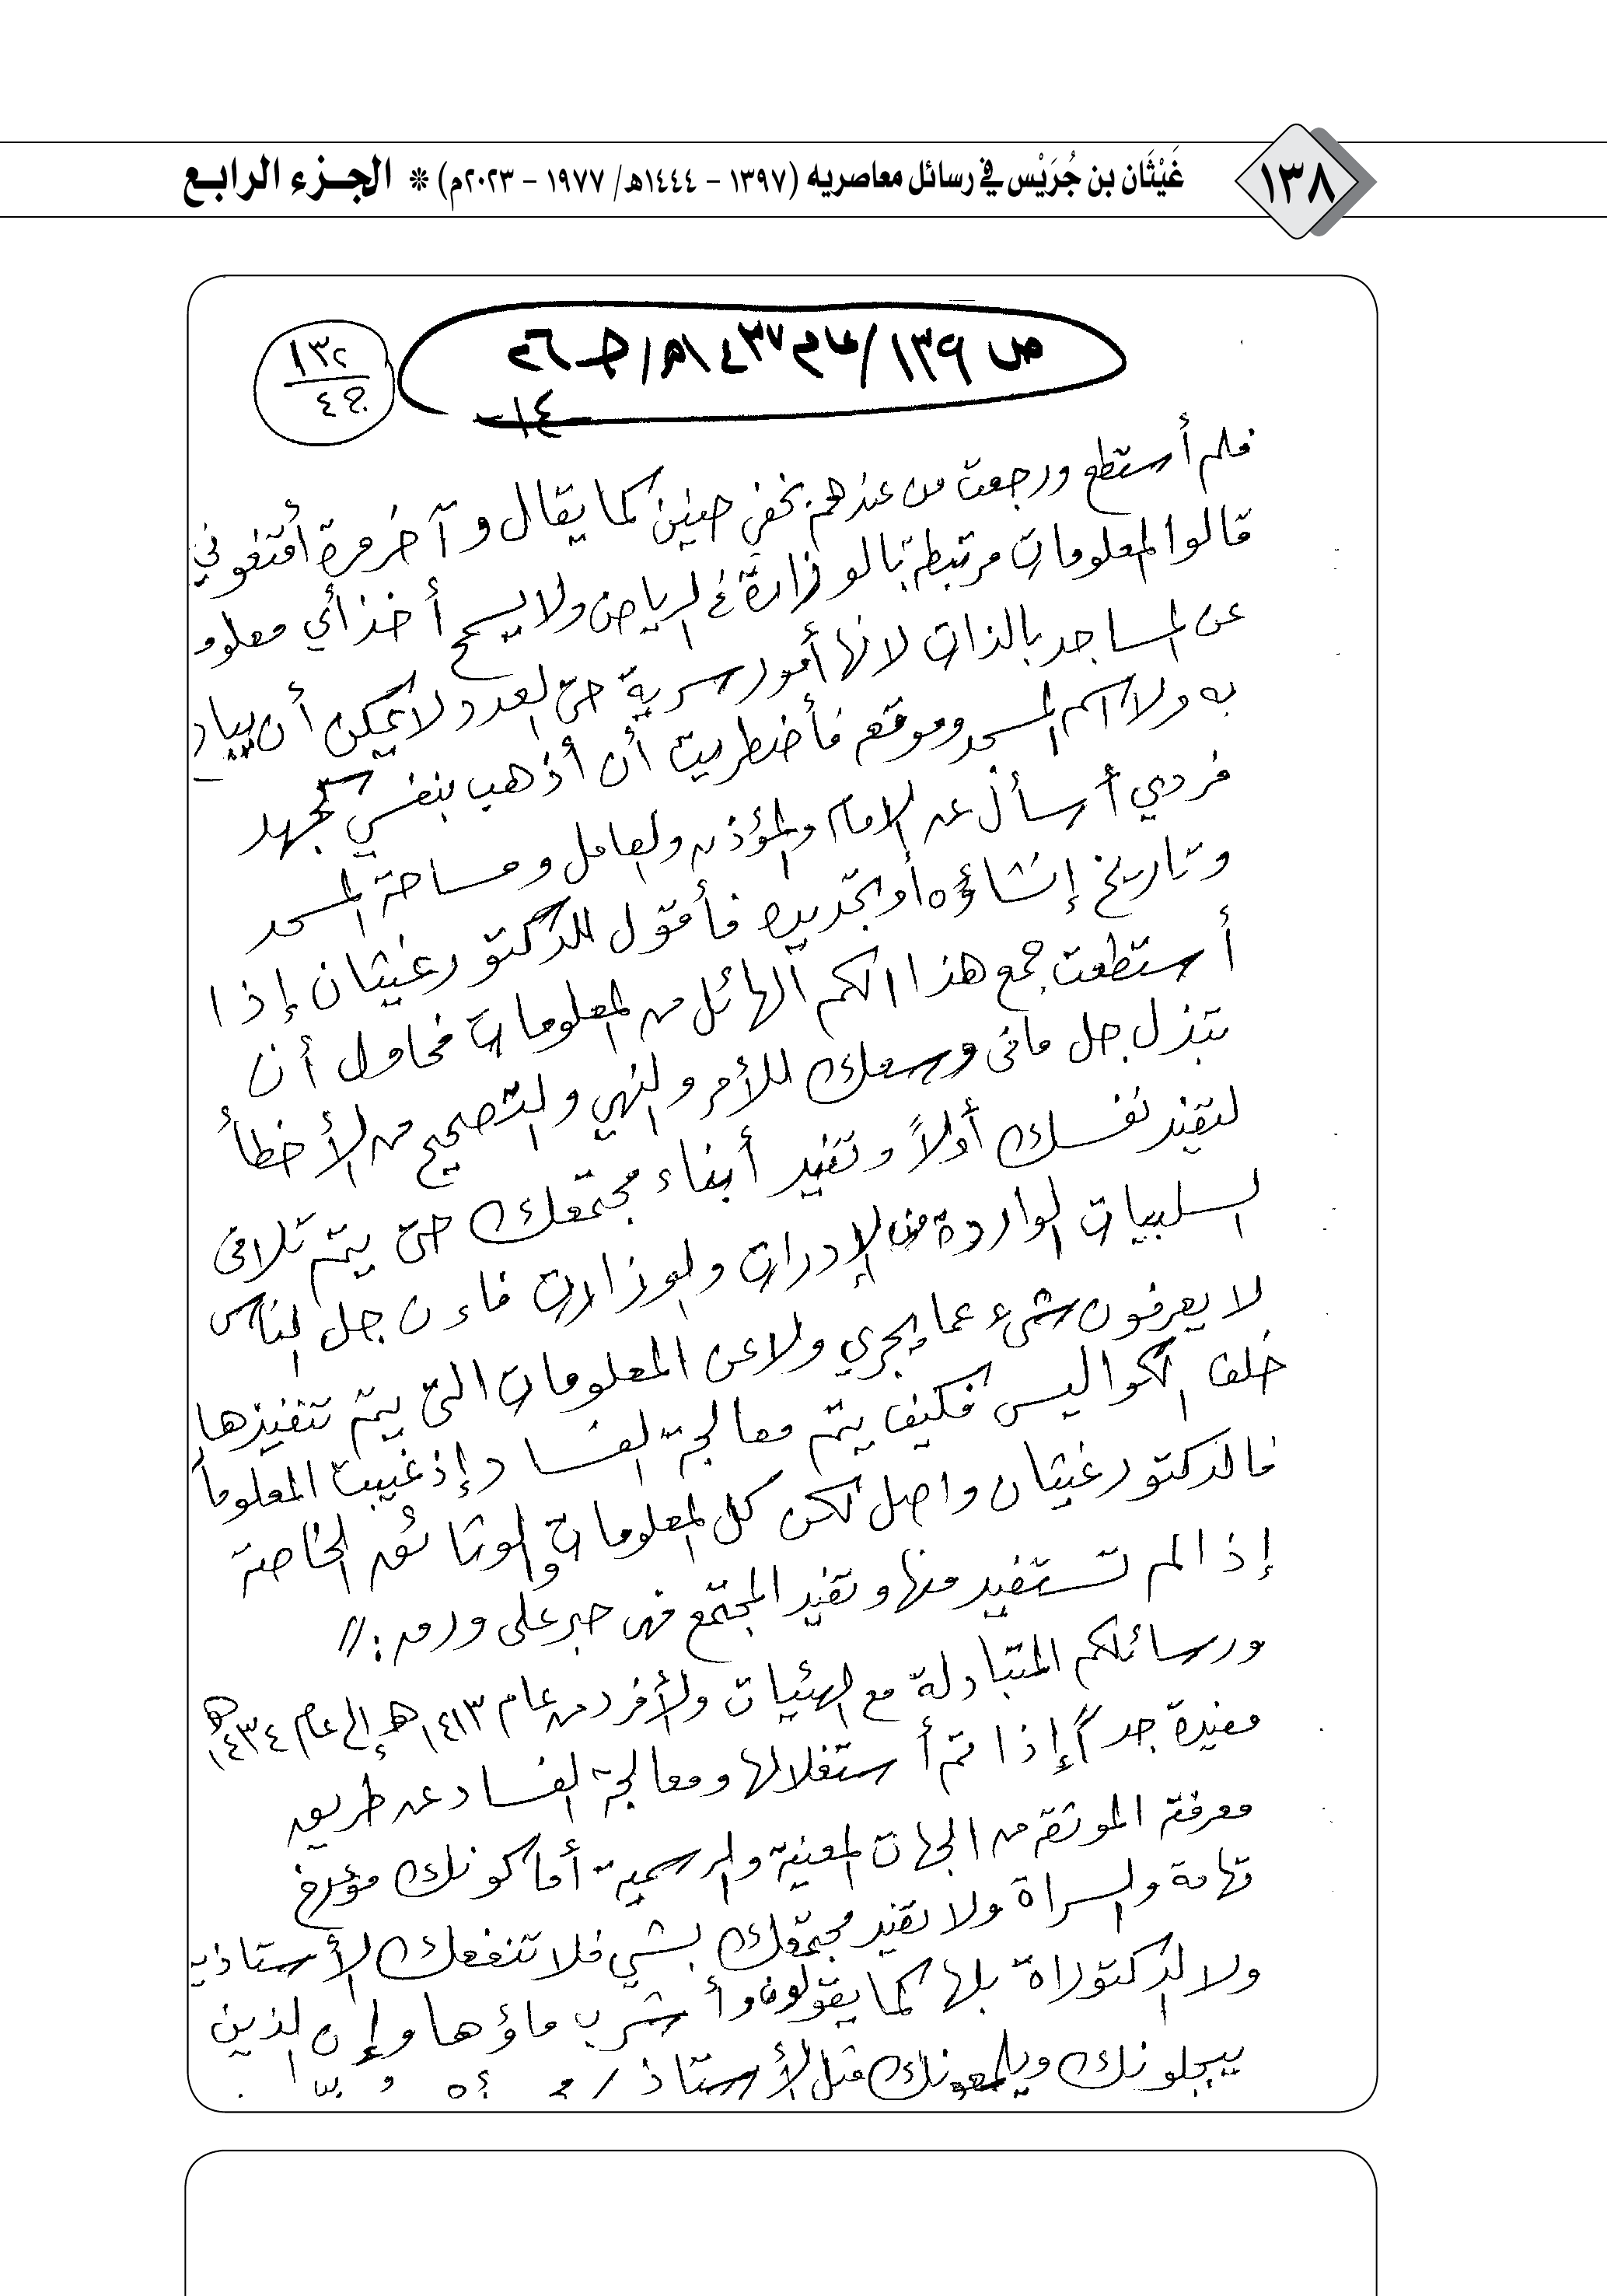 ١٣٨
غَيْثَان بن جُرَيْس في رسائل معاصريه (١٣٩٧ - ١٤٤٤هـ/ ١٩٧٧ - ٢٠٢٣م) * الجزء الرابع
ص ١٣٩/عام ١٤٣٧هـ/ جـ ٢٦
١٣٢
ج ٤
-١٤-
فلم أستطع ورجعت من عندهم بخفي حنين كما يقال و آخر مرة أقنعوني
قالوا المعلومات مرتبطة بالوزارة في الرياض ولا يسمح أخذ أي معلو
عن المساجد بالذات لانها أمور سرية حتى العدد لا يمكن أن
به ولا اسم المسجد وموقعه فأضطريت أن أذهب بنفسي بجهد
فردي أسأل عن الامام والمؤذن والعامل ومساحة المسجد
وتاريخ إنشاؤه أو تجديده فأقول للدكتور غيثان إذا
أستطعت جمع هذا الكم الهائل من المعلومات فحاول أن
تبذل جل مافى وسعك للأمر والنهي والتصحيح من الأخطأ
لتفيد نفسك أولاً وتفيد أبناء مجتمعك حتى يتم تلافى
السلبيات الواردة من الإدرات والوزارات فاءن جل الناس
لا يعرفون شىء عما يجري ولا عن المعلومات التى يتم تنفيذها
خلف الكواليس فكيف يتم معالجة الفساد إذ غيبت المعلوماً
فالدكتور غيثان واصل لكن كل المعلومات والوثائق الخاصة
إذا لم تستفيد منها وتفيد المجتمع فهى حبر على ورق : //
ورسائلكم المتبادلة مع الهيئات والأفرد من عام ١٤١٣هـ إلى عام ١٤٣٤هـ
مفيدة جداً إذا تم أستغلالها ومعالجة الفساد عن طريق
معرفة الموثقة من الجهات المعنية والرسمية أما كونك مؤرخ
تهامة والسراة ولا تفيد مجتمعك بشي فلا تنفعك الأستاذية
ولا الدكتوراة بلها كما يقولون وأشرب ماؤها وإن الذين
يبجلونك ويلمعونك مثل الأستاذ /